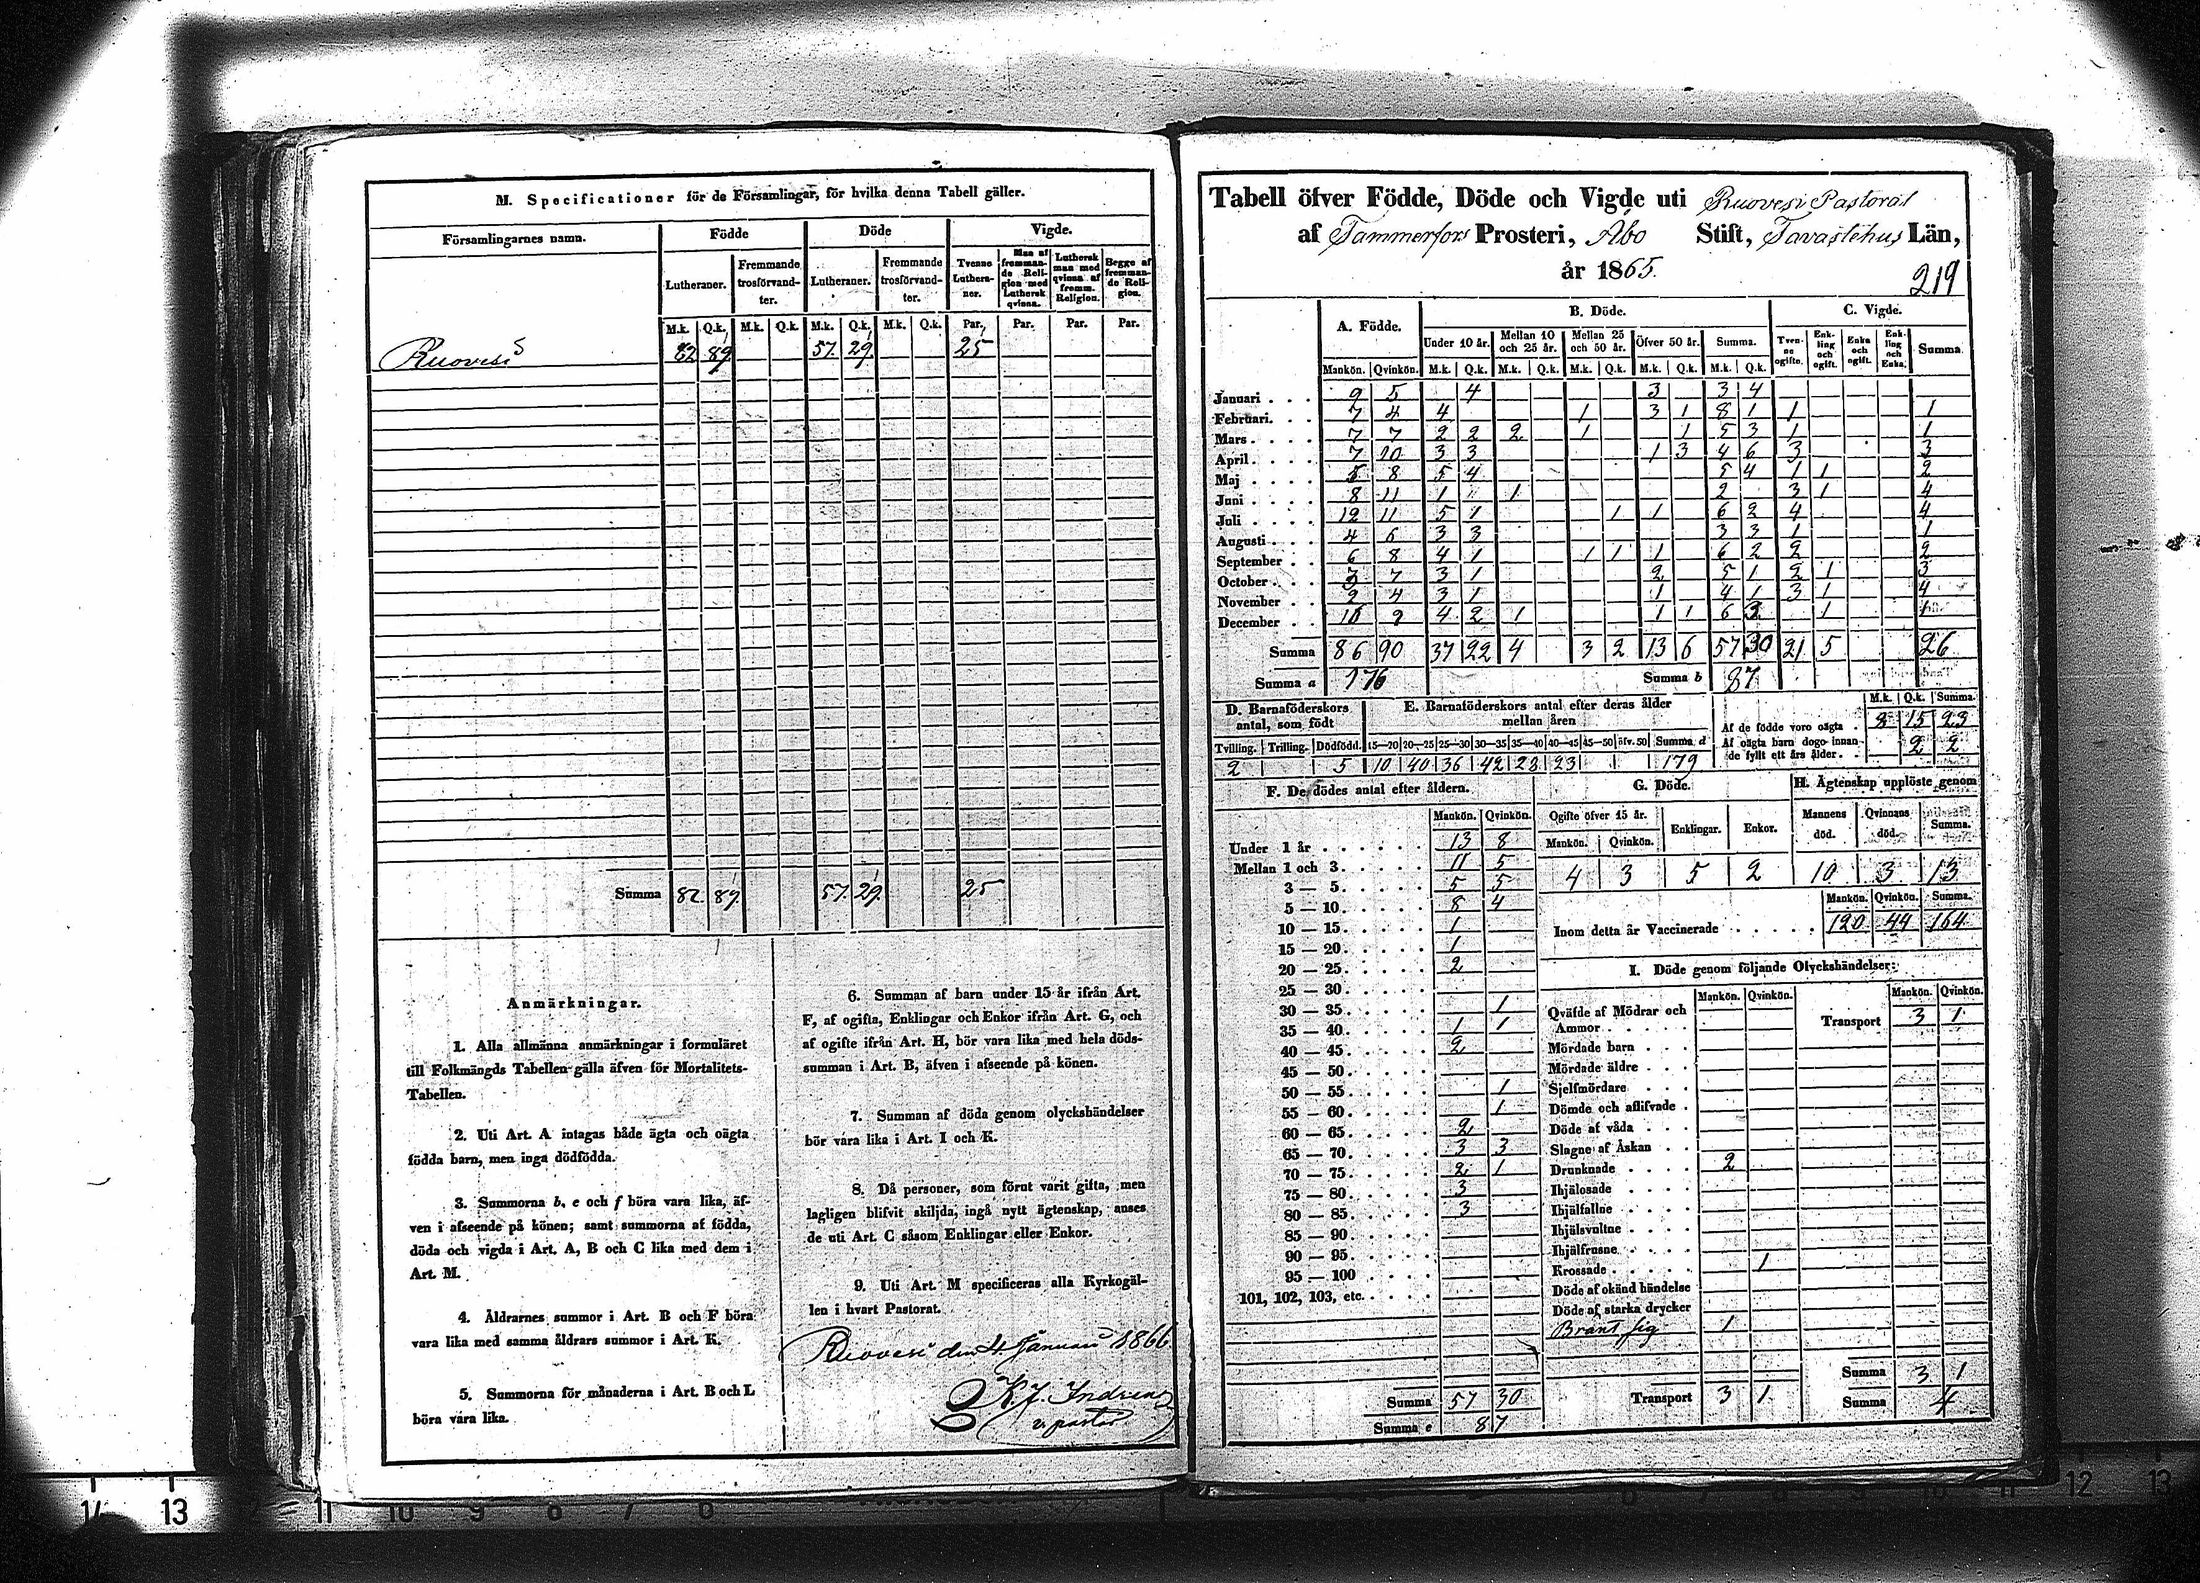 M. Specificationer för de Församlingar, för hvilka denna Tabell gäller.
Församlingarnes namn. Födde Döde Vigde.
Lutheraner. Fremmande trosförvandter. Lutheraner. Fremmande trosförvandter. Tvenne Lutheraner. Man af fremmande Religion med Luthersk qvinna. Luthersk man med qvinna af fremm. Religion. Begge af fremmande Religion.
M.k. Q.k. M.k. Q.k. M.k. Q.k. M.k. Q.k. Par. Par. Par. Par.
Ruovesi 82 89 57. 29. 25
Summa 82. 89. 57. 29. 25
Anmärkningar.
1. Alla allmänna anmärkningar i formuläret
till Folkmängds Tabellen gälla äfven för Mortalitets-
Tabellen.
2. Uti Art. A intagas både ägta och oägta
födda barn, men inga dödfödda.
3. Summorna b, e och f böra vara lika, äf-
ven i afseende på könen; samt summorna af födda,
döda och vigda i Art. A, B och C lika med dem i
Art. M.
4. Åldrarnes summor i Art. B och F böra
vara lika med samma åldrars summor i Art. K.
5. Summorna för månaderna i Art. B och L
böra vara lika.
6. Summan af barn under 15 år ifrån Art.
F, af ogifta, Enklingar och Enkor ifrån Art. G, och
af ogifte ifrån Art. H, bör vara lika med hela döds-
summan i Art. B, äfven i afseende på könen.
7. Summan af döda genom olyckshändelser
bör vara lika i Art. I och K.
8. Då personer, som förut varit gifta, men
lagligen blifvit skiljda, ingå nytt ägtenskap, anses
de uti Art. C såsom Enklingar eller Enkor.
9. Uti Art. M specificeras alla Kyrkogäl-
len i hvart Pastorat.
Ruovesi den 4 Januari 1866
K. J. Indren
v. pastor
Tabell öfver Födde, Döde och Vigde uti Ruovesi Pastorat
af Tammerfors Prosteri, Åbo Stift, Tavastehus Län,
år 1865.
219
A. Födde. B. Döde. C. Vigde.
Under 10 år. Mellan 10 och 25 år. Mellan 25 och 50 år. Öfver 50 år. Summa. Tvenne ogifte. Enkling och ogift. Enka och ogift. Enkling och Enka. Summa.
Mankön. Qvinkön. M.k. Q.k. M.k. Q.k. M.k. Q.k. M.k. Q.k. M.k. Q.k.
Januari 9 5 4 3 3 4
Februari. 7 4 4 1 3 1 8 1 1 1
Mars 7 7 2 2 2 1 1 5 3 1 1
April 7 10 3 3 1 3 4 6 3 3
Maj 5 8 5 4 5 4 1 1 2
Juni 8 11 1 1 2 3 1 4
Juli 12 11 5 1 1 1 6 2 4 4
Augusti 4 6 3 3 3 3 1 1
September 6 8 4 1 1 1 1 6 2 2 2
October 7 3 1 2 5 1 2 1 3
November 4 3 1 1 4 1 3 1 4
December 4 2 1 1 1 6 3 1 1
Summa 86 90 37 22 4 3 2 13 6 57 30 21 5 26
Summa a 176 Summa b 87
D. Barnaföderskors antal, som födt
Tvilling. Trilling. Dödfödd.
2 5
E. Barnaföderskors antal efter deras ålder mellan åren
15—20 20—25 25—30 30—35 35—40 40—45 45—50 öfv. 50 Summa d
10 40 36 42 28 23 179
M.k. Q.k. Summa.
Af de födde voro oägta 8 15 23
Af oägta barn dogo innan de fyllt ett års ålder 2 2
F. De dödes antal efter åldern.
Mankön. Qvinkön.
Under 1 år 13 8
Mellan 1 och 3 11 5
3 — 5 5 5
5 — 10 8 4
10 — 15 1
15 — 20 1
20 — 25 2
25 — 30
30 — 35 1
35 — 40 1 1
40 — 45 2
45 — 50
50 — 55 1
55 — 60 1
60 — 65 2
65 — 70 3 3
70 — 75 2 1
75 — 80 3
80 — 85 3
85 — 90
90 — 95
95 — 100
101, 102, 103, etc.
Summa 57 30
Summa e 87
G. Döde.
Ogifte öfver 15 år. Enklingar. Enkor.
Mankön. Qvinkön.
4 3 5 2
H. Ägtenskap upplöste genom
Mannens död. Qvinnans död. Summa.
10 3 13
Mankön. Qvinkön. Summa.
Inom detta år Vaccinerade 120 44 164
I. Döde genom följande Olyckshändelser:
Mankön. Qvinkön. Mankön. Qvinkön.
Qväfde af Mödrar och Ammor
Transport 3 1
Mördade barn
Mördade äldre
Sjelfmördare
Dömde och aflifvade
Döde af våda
Slagne af Åskan
Drunknade 2
Ihjälosade
Ihjälfallne
Ihjälsvultne
Ihjälfrusne
Krossade 1
Döde af okänd händelse
Döde af starka drycker
Bränt sig 1
Summa 3 1
Transport 3 1 Summa 4
14 13 11 10 9 8 7 6
12 13